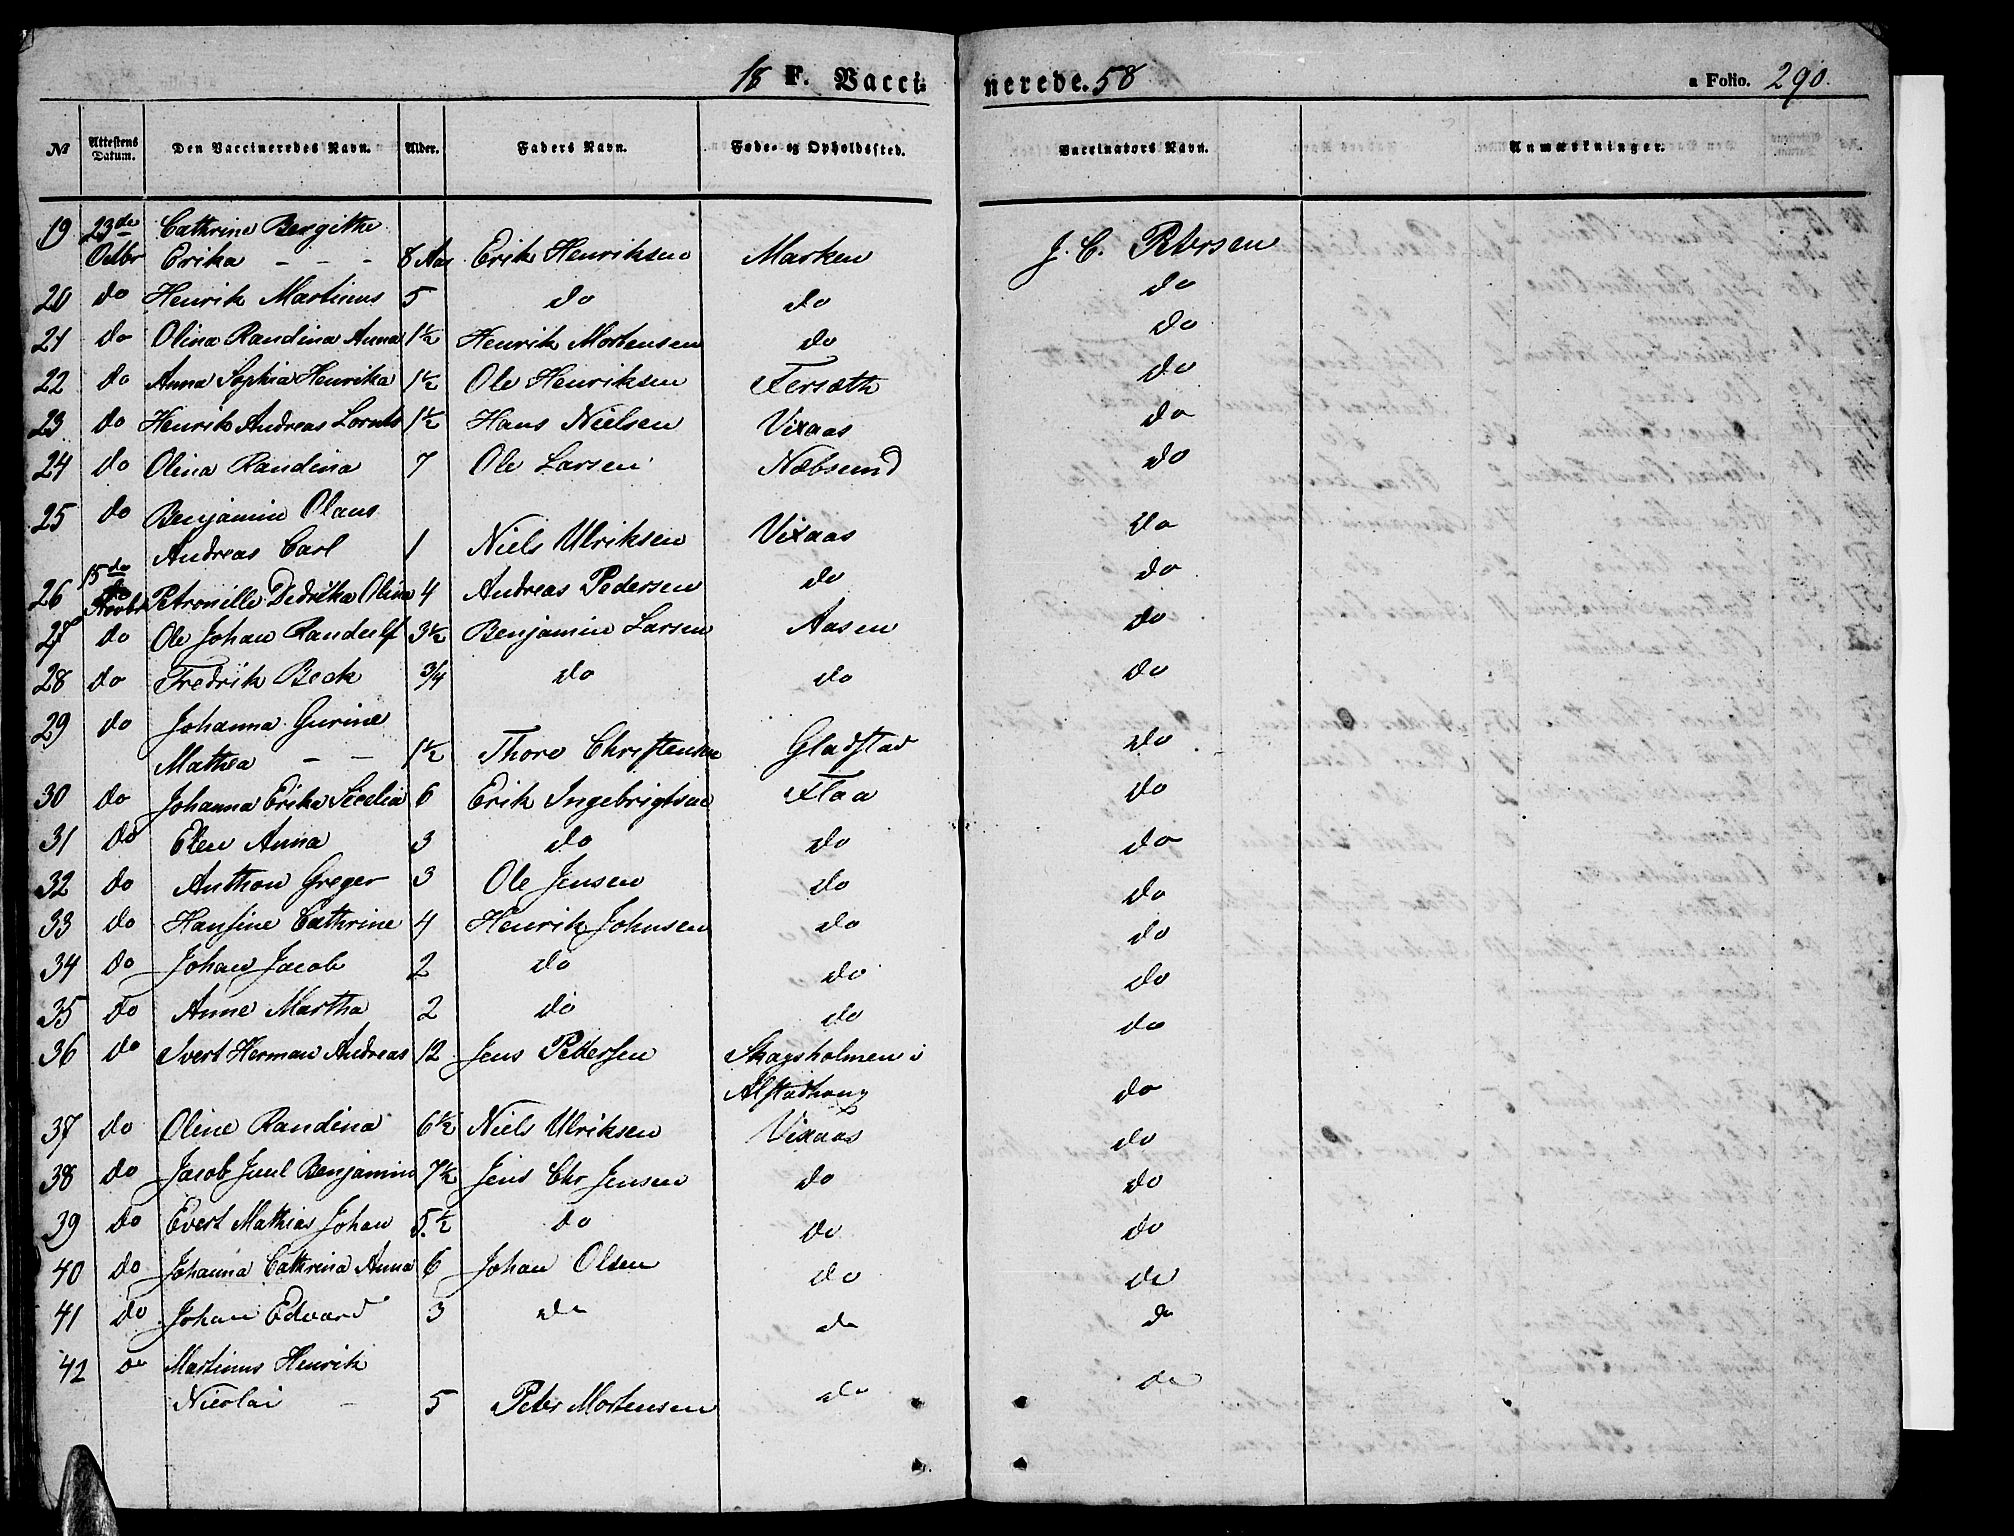 18 F. Vacci= nerede. 58 a Folio. 290.
No Attestens Datum. Den Vaccineredes Navn. Alder. Faders Navn. Føde- og Opholdssted. Vaccinators Navn. Anmærkninger.
19 23de Cathrine Bergitha
Octbr Erika - - - 8 Aar Erik Henriksen Marken J. C. Petersen
20 do Henrik Martinus 5 do do do
21 do Olina Randina Anna 1½ Henrik Mortensen do do
22 do Anna Sophia Henrika 1½ Ole Henriksen Fersæth do
23 do Henrik Andreas Lornts 1½ Hans Nielsen Vixaas do
24 do Olina Randina 7 Ole Larsen Næbsund do
25 do Benjamin Olaus
Andreas Carl 1 Niels Ulriksen Vixaas do
15de
26 Novbr Petronille Didrika Olina 4 Andreas Pedersen do do
27 do Ole Johan Randulf 3½ Benjamin Larsen Aasen do
28 do Fredrik Beck 3/4 do do do
29 do Johanna Gurine
Mathea - - 1½ Thore Christensen Gladstad do
30 do Johanna Erika Sicelia 6 Erik Ingebrigtsen Flaa do
31 do Elen Anna 3 do do do
32 do Anthon Greger 3 Ole Jensen do do
33 do Hansine Cathrine 4 Henrik Johnsen do do
34 do Johan Jacob 2 do do do
35 do Anne Martha 2 do do do
36 do Ivert Herman Andreas 12 Jens Pettersen Skagsholmen i
Alstadhoug do
37 do Oline Randina 6½ Niels Ulriksen Vixaas do
38 do Jacob Juul Benjamin 7½ Jens Chr Jensen do do
39 do Evert Mathias Johan 5.½ do do do
40 do Johanna Cathrina Anna 6 Johan Olsen do do
41 do Johan Edvard 3 do do do
42 do Martinus Henrik
Nicolai - 5 Peter Mortensen do do